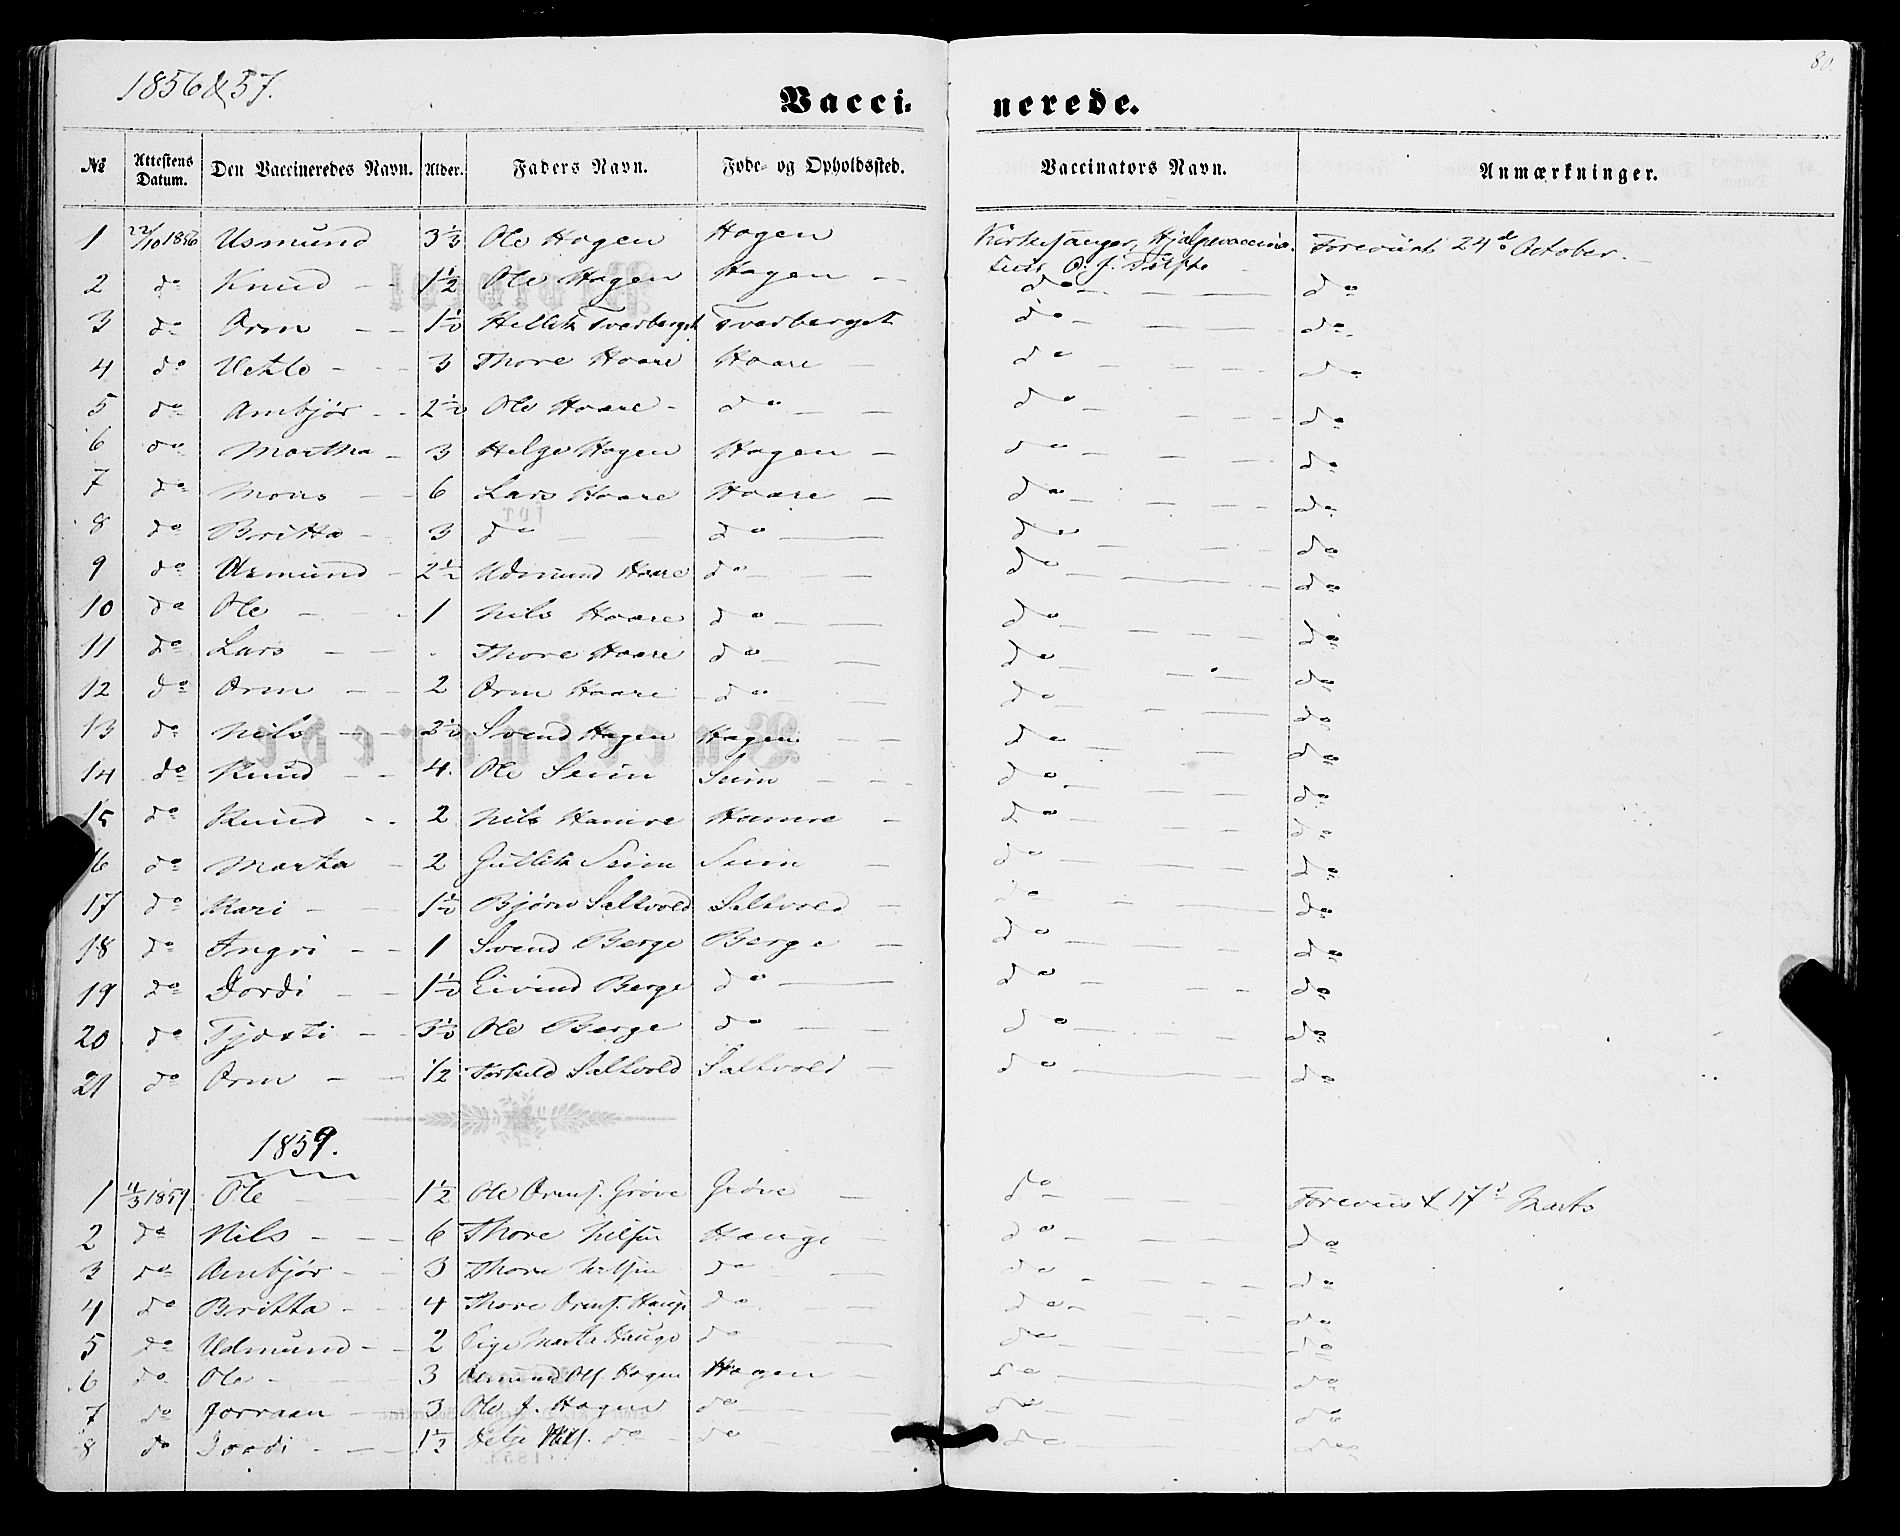 80.
1856 & 57.
Vacci- nerede.
№ Attestens Datum. Den Vaccineredes Navn. Alder. Faders Navn. Føde- og Opholdssted. Vaccinators Navn. Anmærkninger.
1 22/10 1856 Asmund 3½ Ole Hagen Hagen Kirkesanger, Hjælpevaccina- Foreviist 24de October.
teur O. J. Tufte
2 do Knud 1½ Ole Hagen Hagen do do
3 do Orm 1½ Hellik Tvarberget Tvarberget do do
4 do Vetle 3 Thore Haare Haare do do
5 do Ambjør 2½ Ole Haare do do do
6 do Martha 3 Helge Hagen Hagen do do
7 do Mons 6 Lars Haare Haare do do
8 do Britta 3 do do do do
9 do Asmund 2½ Udmund Haare do do do
10 do Ole 1 Nils Haare do do do
11 do Lars Thore Haare do do do
12 do Orm 2 Orm Haare do do do
13 do Nils 2½ Svend Hagen Hagen do do
14 do Knud 4. Ole Seim Seim do do
15 do Knud 2 Nils Hamre Hamre do do
16 do Marta 2 Gullik Seim Seim do do
17 do Kari 1½ Bjørn Saltvold Saltvold do do
18 do Ingri 1 Svend Berge Berge do do
19 do Dordi 1½ Eivind Berge do do do
20 do 3½ Ole Berge do do do
21 do Orm ½ Torkild Saltvold Saltvold do do
1859.
1 11/3 1859 Ole 1½ Ole Orms. Grøve Grøve do Foreviist 17de Marts
2 do Nils 6 Thore Nilsen Hauge do do
3 do Ambjør 3 Thore Nilsen do do do
4 do Britta 4 Thore Orms. Hauge do do do
5 do Udmund 2 Pige Marta Hauge do do do
6 do Ole 3 Asmund Ols. Hagen Hagen do do
7 do Jorraan 3 Ole J. Hagen do do do
8 do Dordi 1½ Helge Nils. do do do do